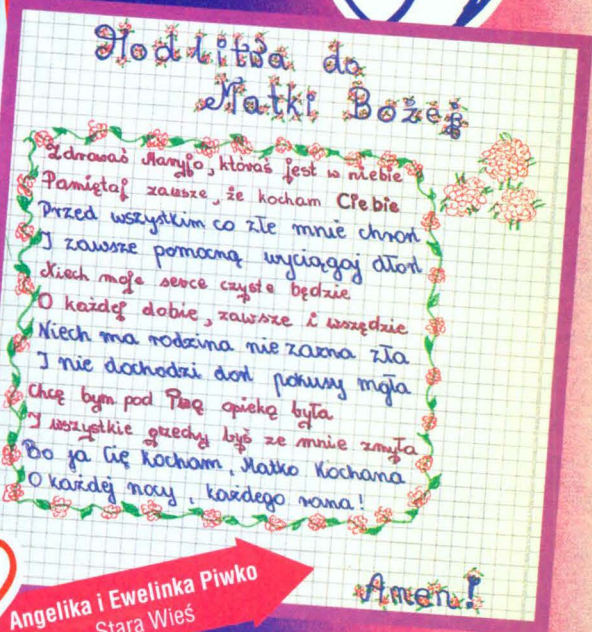 Modlitwa do
Matki Bożej
Zdrowaś Maryjo, któraś jest w niebie
Pamiętaj zawsze, że kocham Ciebie
Przed wszystkim co złe mnie chroń
I zawsze pomocną wyciągaj dłoń
Niech moje serce czyste będzie
O każdej dobie, zawsze i wszędzie
Niech ma rodzina nie zazna zła
I nie dochodzi doń pokusy mgła
Chcę bym pod Twą opieką była
I wszystkie grzechy byś ze mnie zmyła
Bo ja Cię kocham, Matko Kochana
O każdej nocy, każdego rana!
Amen!
Angelika i Ewelinka Piwko
Stara Wieś